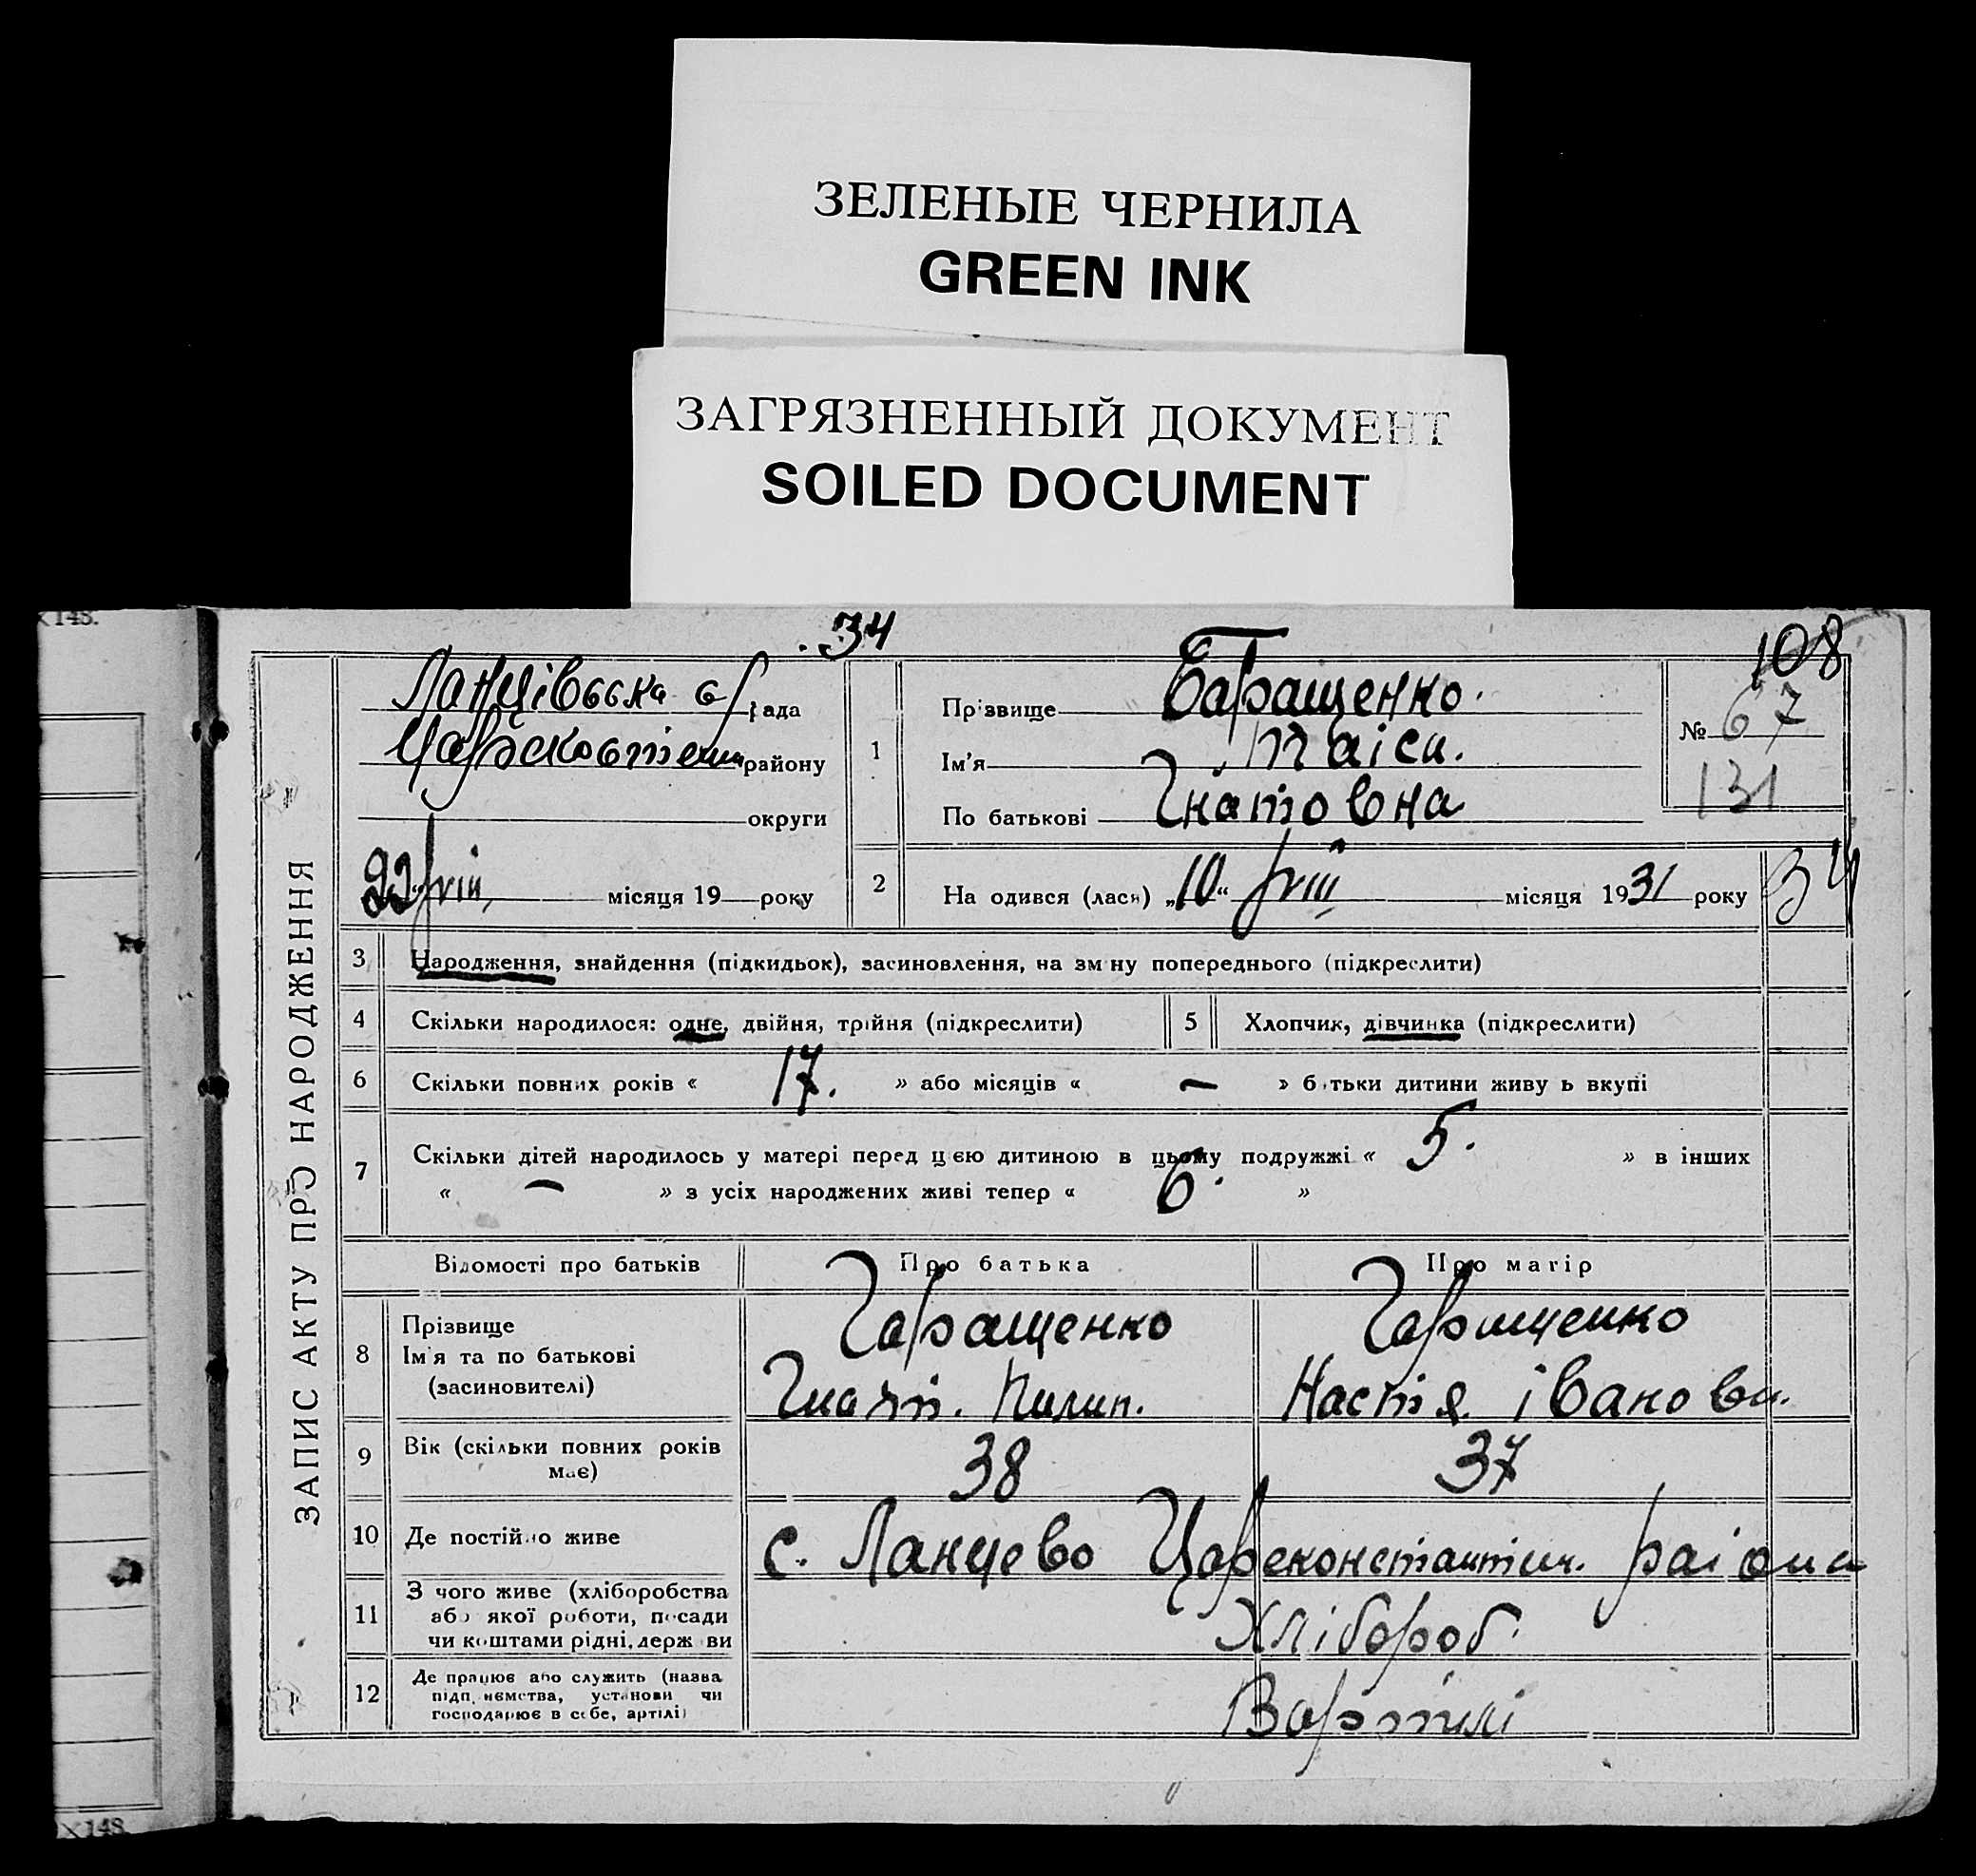 ЗЕЛЕНЫЕ ЧЕРНИЛА
GREEN INK
ЗАГРЯЗНЕННЫЙ ДОКУМЕНТ
SOILED DOCUMENT
х 148.
34
108
ЗАПИС АКТУ ПРО НАРОДЖЕННЯ
Ланцівська с/рада
району
округи
22 VIII місяця 19 року
1
Прізвище Гаращенко.
Ім'я Таіса.
По батькові Гнатовна
№ 67
131
2
На одився (лася) „10“ VIII місяця 1931 року
34
3 Народження, знайдення (підкидьок), засиновлення, на зм ну попереднього (підкреслити)
4 Скільки народилося: одне, двійня, трійня (підкреслити)
5 Хлопчик, дівчинка (підкреслити)
6 Скільки повних років « 17. » або місяців « — » б тьки дитини живу ь вкупі
7 Скільки дітей народилось у матері перед цією дитиною в цьому подружжі « 5. » в інших
« — » з усіх народжених живі тепер « 6. »
Відомості про батьків Про батька Про матір
8 Прізвище Гаращенко Гаращенко
Ім'я та по батькові
(засиновителі) Гнат. Пилип. Настя Івановн.
9 Вік (скільки повних років має) 38 37
10 Де постійно живе с. Ланцево Цареконстантин. раіона
11 З чого живе (хліборобства
або якої роботи, посади
чи коштами рідні, держ ви Хлібороб.
12 Де працює або служить (назва
підп иємства, установи чи
господарює в себе, артілі) В артилі
х 148